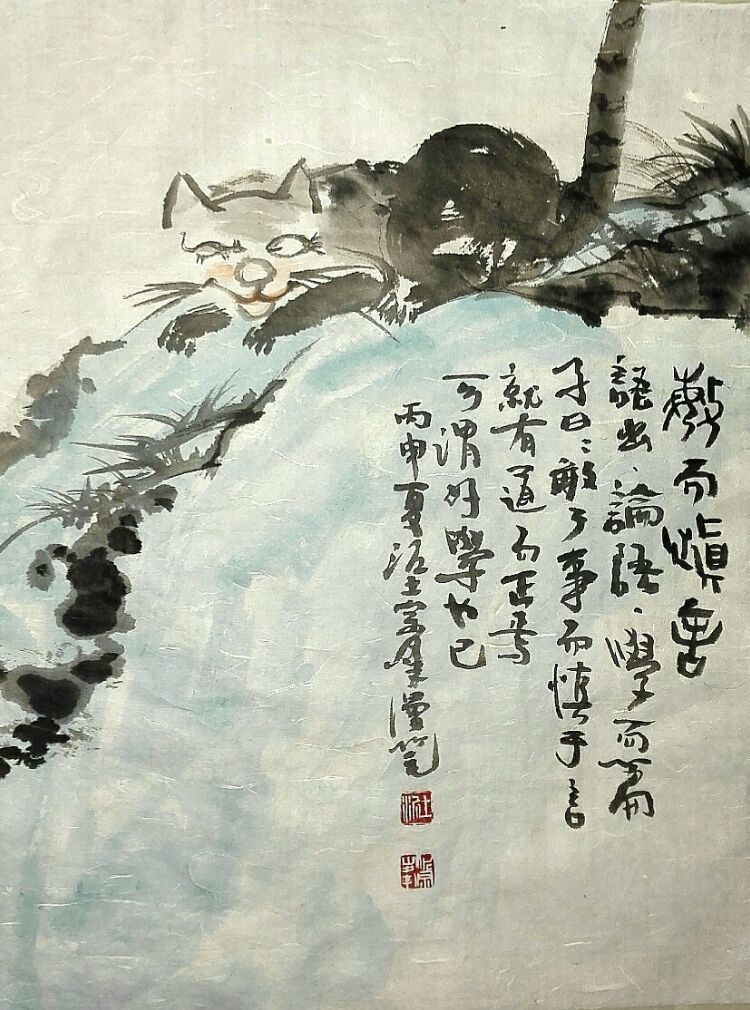 敏而慎言
語出、論語、學而篇
子曰：敏于事而慎于言
就有道而正焉
可謂好學也已
丙申夏 漫笔